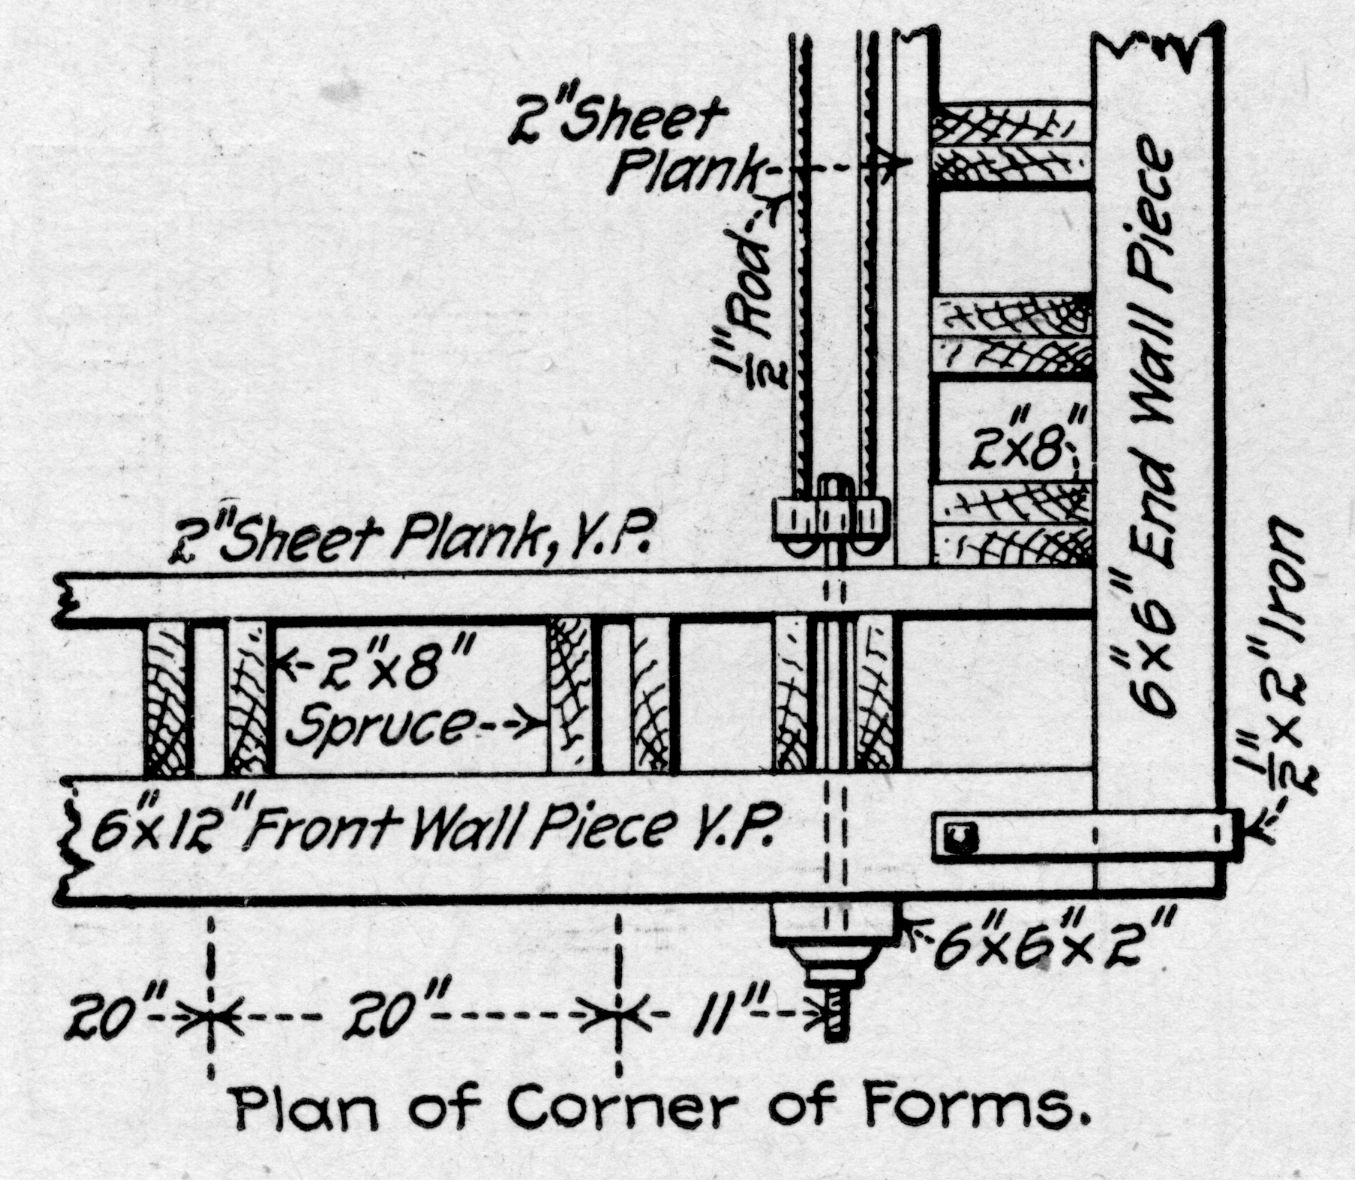 2" Sheet
Plank
1/2" Rod
2"x8"
6"x6" End Wall Piece
2" Sheet Plank, Y.P.
2"x8"
Spruce
1/2"x2" Iron
6"x12" Front Wall Piece Y.P.
6"x6"x2"
20" 20" 11"
Plan of Corner of Forms.